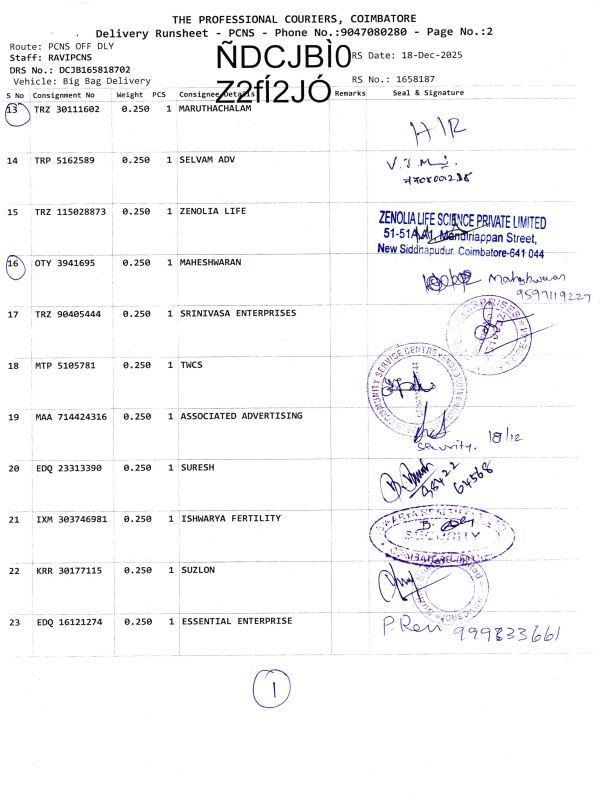 THE PROFESSIONAL COURIERS, COIMBATORE
Delivery Runsheet - PCNS - Phone No.:9047080280 - Page No.:2
Route: PCNS OFF DLY
Staff: RAVIPCNS
RS Date: 18-Dec-2025
DRS No.: DCJB165818702
ÑDCJBÌ0
Z2fÍ2JÓ
Vehicle: Big Bag Delivery
RS No.: 1658187
S No Consignment No Weight PCS Consignee Details Remarks Seal & Signature
13 TRZ 30111602 0.250 1 MARUTHACHALAM
14 TRP 5162589 0.250 1 SELVAM ADV
15 TRZ 115028873 0.250 1 ZENOLIA LIFE
ZENOLIA LIFE SCIENCE PRIVATE LIMITED
51-51A, A1, Mandiriappan Street,
New Siddhapudur, Coimbatore-641 044
16 OTY 3941695 0.250 1 MAHESHWARAN
Maheshwaran
9597119227
17 TRZ 90405444 0.250 1 SRINIVASA ENTERPRISES
18 MTP 5105781 0.250 1 TWCS
COMMUNITY SERVICE CENTRE
19 MAA 714424316 0.250 1 ASSOCIATED ADVERTISING
Security. 18/12
20 EDQ 23313390 0.250 1 SURESH
98422
64568
21 IXM 303746981 0.250 1 ISHWARYA FERTILITY
SECURITY
22 KRR 30177115 0.250 1 SUZLON
23 EDQ 16121274 0.250 1 ESSENTIAL ENTERPRISE
999833661
1